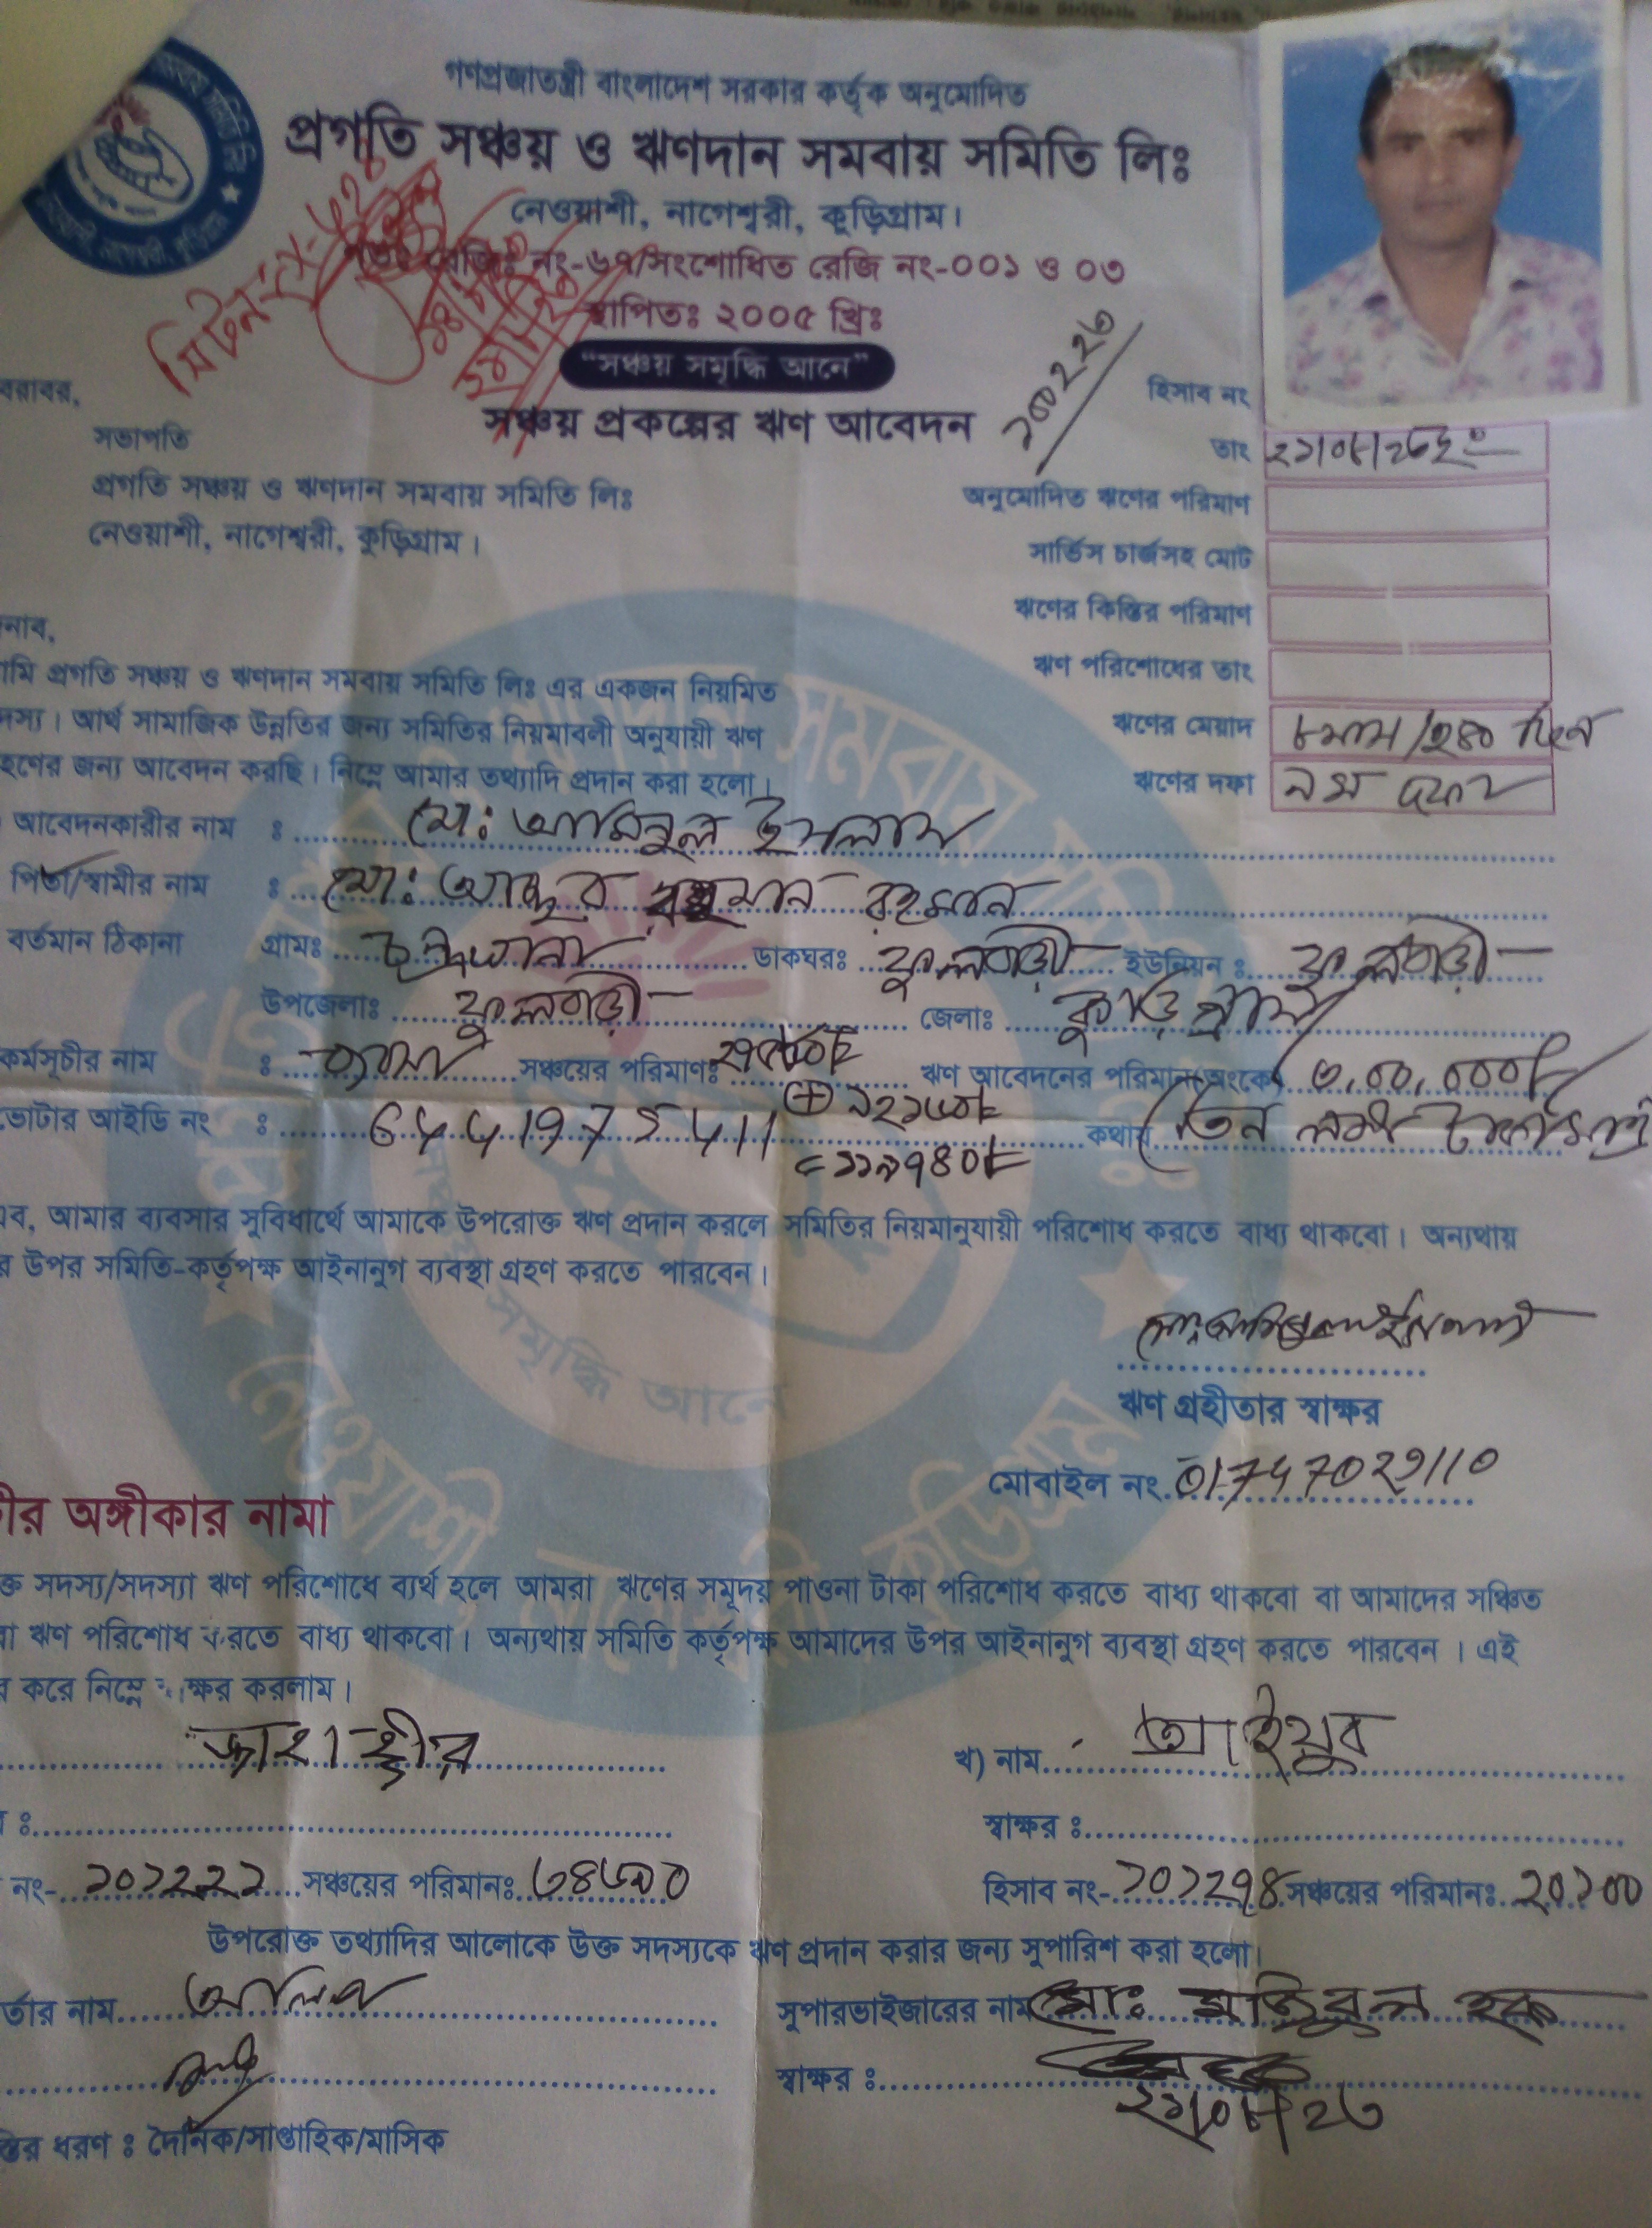 গণপ্রজাতন্ত্রী বাংলাদেশ সরকার কর্তৃক অনুমোদিত
প্রগতি সঞ্চয় ও ঋণদান সমবায় সমিতি লিঃ
নেওয়াশী, নাগেশ্বরী, কুড়িগ্রাম।
রেজিঃ নং-৬৭/সংশোধিত রেজি নং-০০১ ও ০৩
স্থাপিতঃ ২০০৫ খ্রিঃ
"সঞ্চয় সমৃদ্ধি আনে"
সঞ্চয় প্রকল্পের ঋণ আবেদন
হিসাব নং
বরাবর,
সভাপতি
তাং
প্রগতি সঞ্চয় ও ঋণদান সমবায় সমিতি লিঃ
অনুমোদিত ঋণের পরিমাণ
নেওয়াশী, নাগেশ্বরী, কুড়িগ্রাম।
সার্ভিস চার্জসহ মোট
ঋণের কিস্তির পরিমাণ
নাব,
ঋণ পরিশোধের তাং
মি প্রগতি সঞ্চয় ও ঋণদান সমবায় সমিতি লিঃ এর একজন নিয়মিত
দস্য। আর্থ সামাজিক উন্নতির জন্য সমিতির নিয়মাবলী অনুযায়ী ঋণ
ঋণের মেয়াদ ৮মাস/২৪০ দিন
হণের জন্য আবেদন করছি। নিম্নে আমার তথ্যাদি প্রদান করা হলো।
ঋণের দফা ৯ম দফা
আবেদনকারীর নাম : মো: আমিনুল ইসলাম
পিতা/স্বামীর নাম : মো: আব্দুর রহমান
বর্তমান ঠিকানা গ্রামঃ চন্দ্রখানা ডাকঘরঃ ফুলবাড়ী ইউনিয়ন : ফুলবাড়ী
উপজেলাঃ ফুলবাড়ী জেলাঃ কুড়িগ্রাম
কর্মসূচীর নাম : ব্যবসা সঞ্চয়ের পরিমাণঃ ঋণ আবেদনের পরিমান অংকে ৩,০০,০০০/-
ভোটার আইডি নং : কথায় তিন লক্ষ টাকা মাত্র
ব, আমার ব্যবসার সুবিধার্থে আমাকে উপরোক্ত ঋণ প্রদান করলে সমিতির নিয়মানুযায়ী পরিশোধ করতে বাধ্য থাকবো। অন্যথায়
র উপর সমিতি-কর্তৃপক্ষ আইনানুগ ব্যবস্থা গ্রহণ করতে পারবেন।
মোঃ আমিনুল ইসলাম
ঋণ গ্রহীতার স্বাক্ষর
মোবাইল নং
ীর অঙ্গীকার নামা
ক্ত সদস্য/সদস্যা ঋণ পরিশোধে ব্যর্থ হলে আমরা ঋণের সমূদয় পাওনা টাকা পরিশোধ করতে বাধ্য থাকবো বা আমাদের সঞ্চিত
া ঋণ পরিশোধ করতে বাধ্য থাকবো। অন্যথায় সমিতি কর্তৃপক্ষ আমাদের উপর আইনানুগ ব্যবস্থা গ্রহণ করতে পারবেন। এই
র করে নিম্নে স্বাক্ষর করলাম।
জাহাঙ্গীর
খ) নাম আইয়ুব
স্বাক্ষর :
নং- ১০১২২১ সঞ্চয়ের পরিমানঃ ৩৪৬৯০
হিসাব নং- ১০১২৭৪ সঞ্চয়ের পরিমানঃ ২০১০০
উপরোক্ত তথ্যাদির আলোকে উক্ত সদস্যকে ঋণ প্রদান করার জন্য সুপারিশ করা হলো।
র্তার নাম
সুপারভাইজারের নাম মো:
স্বাক্ষর :
২১/০৮/২৩
স্তির ধরণ : দৈনিক/সাপ্তাহিক/মাসিক